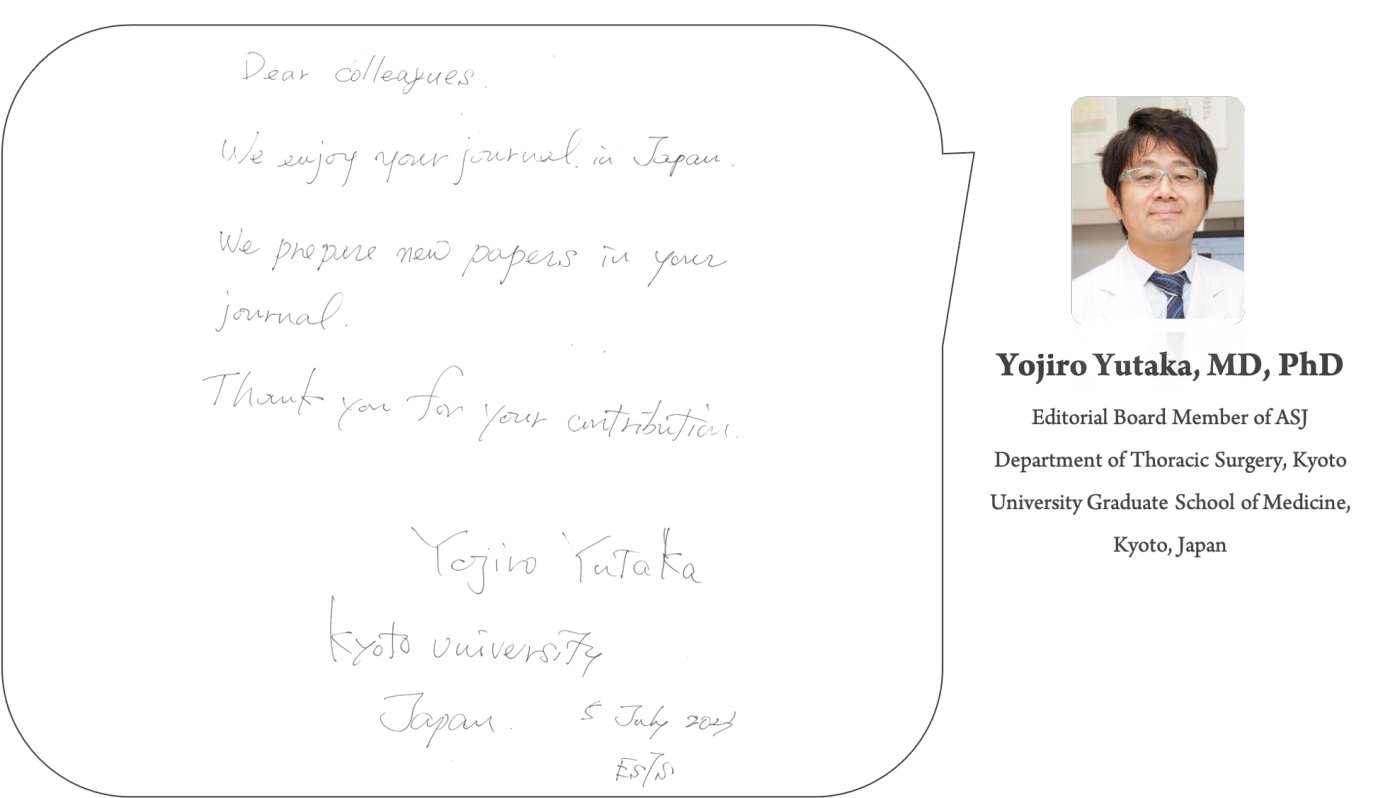 Dear colleagues.
We enjoy your journal in Japan.
We prepare new papers in your
journal.
Thank you for your contribution.
Yojiro Yutaka
Kyoto university
Japan. 5 July
Yojiro Yutaka, MD, PhD
Editorial Board Member of ASJ
Department of Thoracic Surgery, Kyoto
University Graduate School of Medicine,
Kyoto, Japan